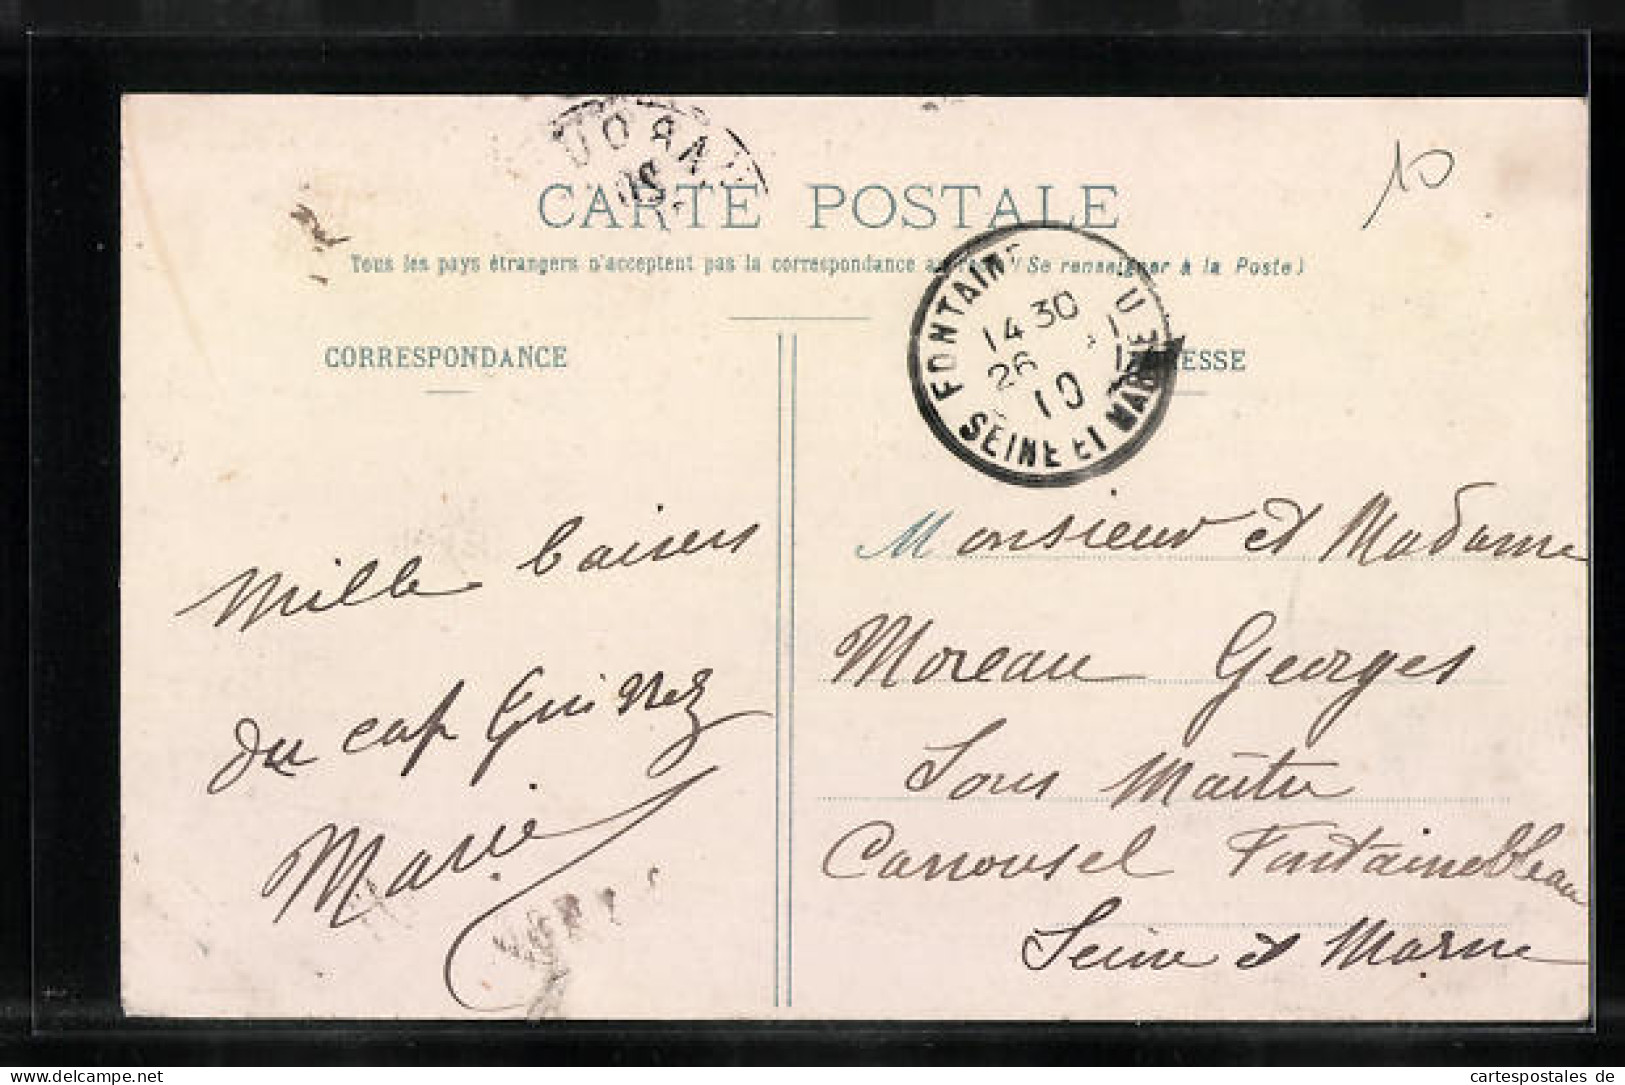 10
CARTE POSTALE
Tous les pays étrangers n'acceptent pas la correspondance au (Se renseigner à la Poste)
FONTAINE U
14 30
26
10
SEINE ET MARNE
CORRESPONDANCE
ESSE
Mille baisers
du cap Guinnez
Marie
Monsieur et Madame
Moreau Georges
Sous Maître
Carrousel Fontainebleau
Seine et Marne
delcampe.net
cartespostales de